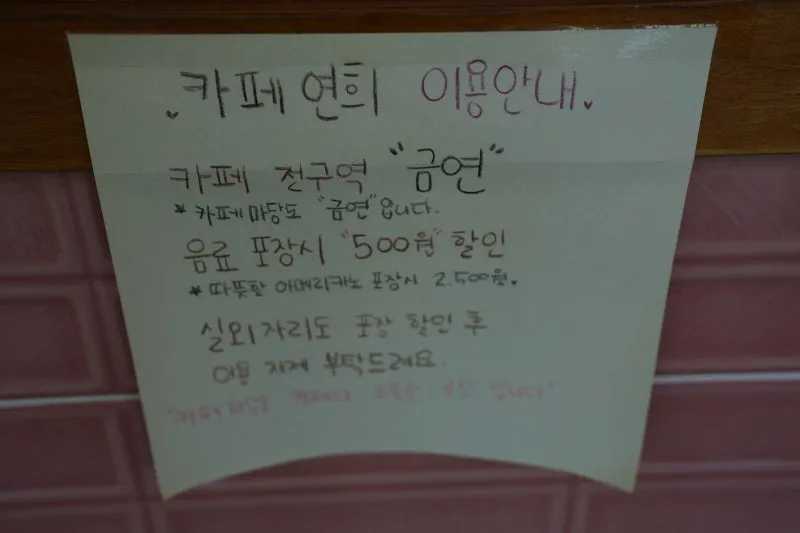 카페 연희 이용안내
카페 전구역 "금연"
* 카페마당도 "금연"입니다.
음료 포장시 "500원" 할인
* 따뜻한 아메리카노 포장시 2.500원.
실외자리도 포장 할인 후
이용 자제 부탁드려요.
"카페마당도 카페의 입니다"